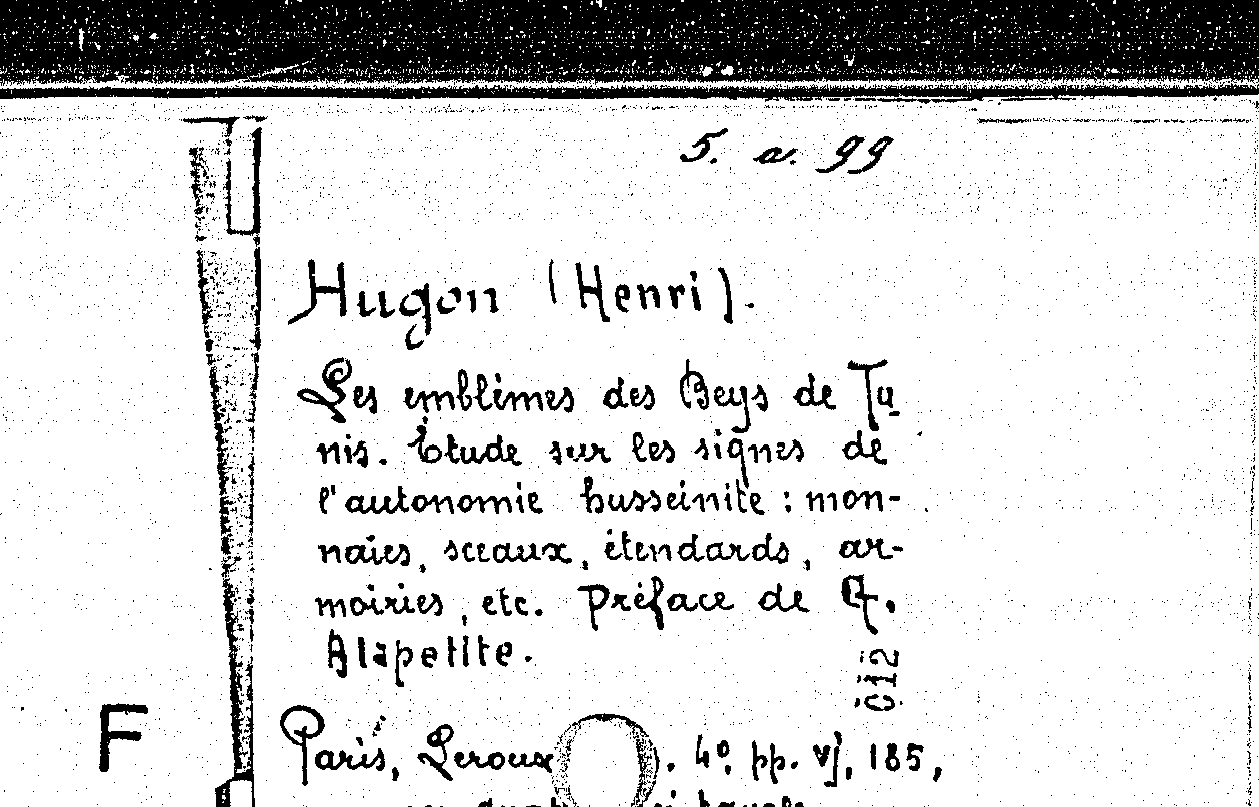 5. a. 99
Hugon (Henri).
Les emblèmes des Beys de Tu
nis. Étude sur les signes de
l'autonomie husseinite : mon-
naies, sceaux, étendards, ar-
moiries, etc. Préface de G.
Alapetite.
C12
F
Paris, Leroux . 4º. pp. vj, 185,